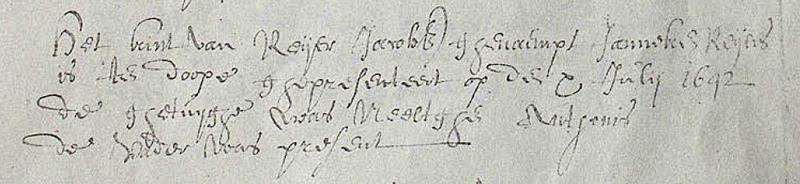 Het kint van Reijer Jacobs ghenaempt Janneken Reijers
is ten doope ghepresenteert op den X Julij 1642
de ghetuijghe was Neeltghe Anthonis
de vader was present